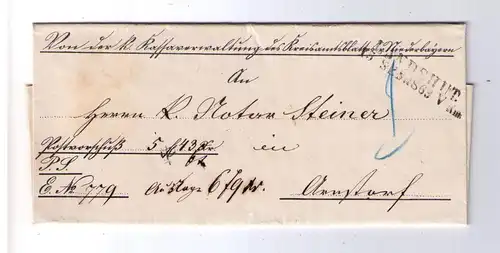 Von der k. Kassaverwaltung des Kreisamtsblattes v. Niederbayern
LANDSHUT
An
Herrn k. Notar Steiner
Postvorschuß 5 f 43 Xr in
P.S.
E. No 779 Auslage 6 f 9 kr. Arnstorf